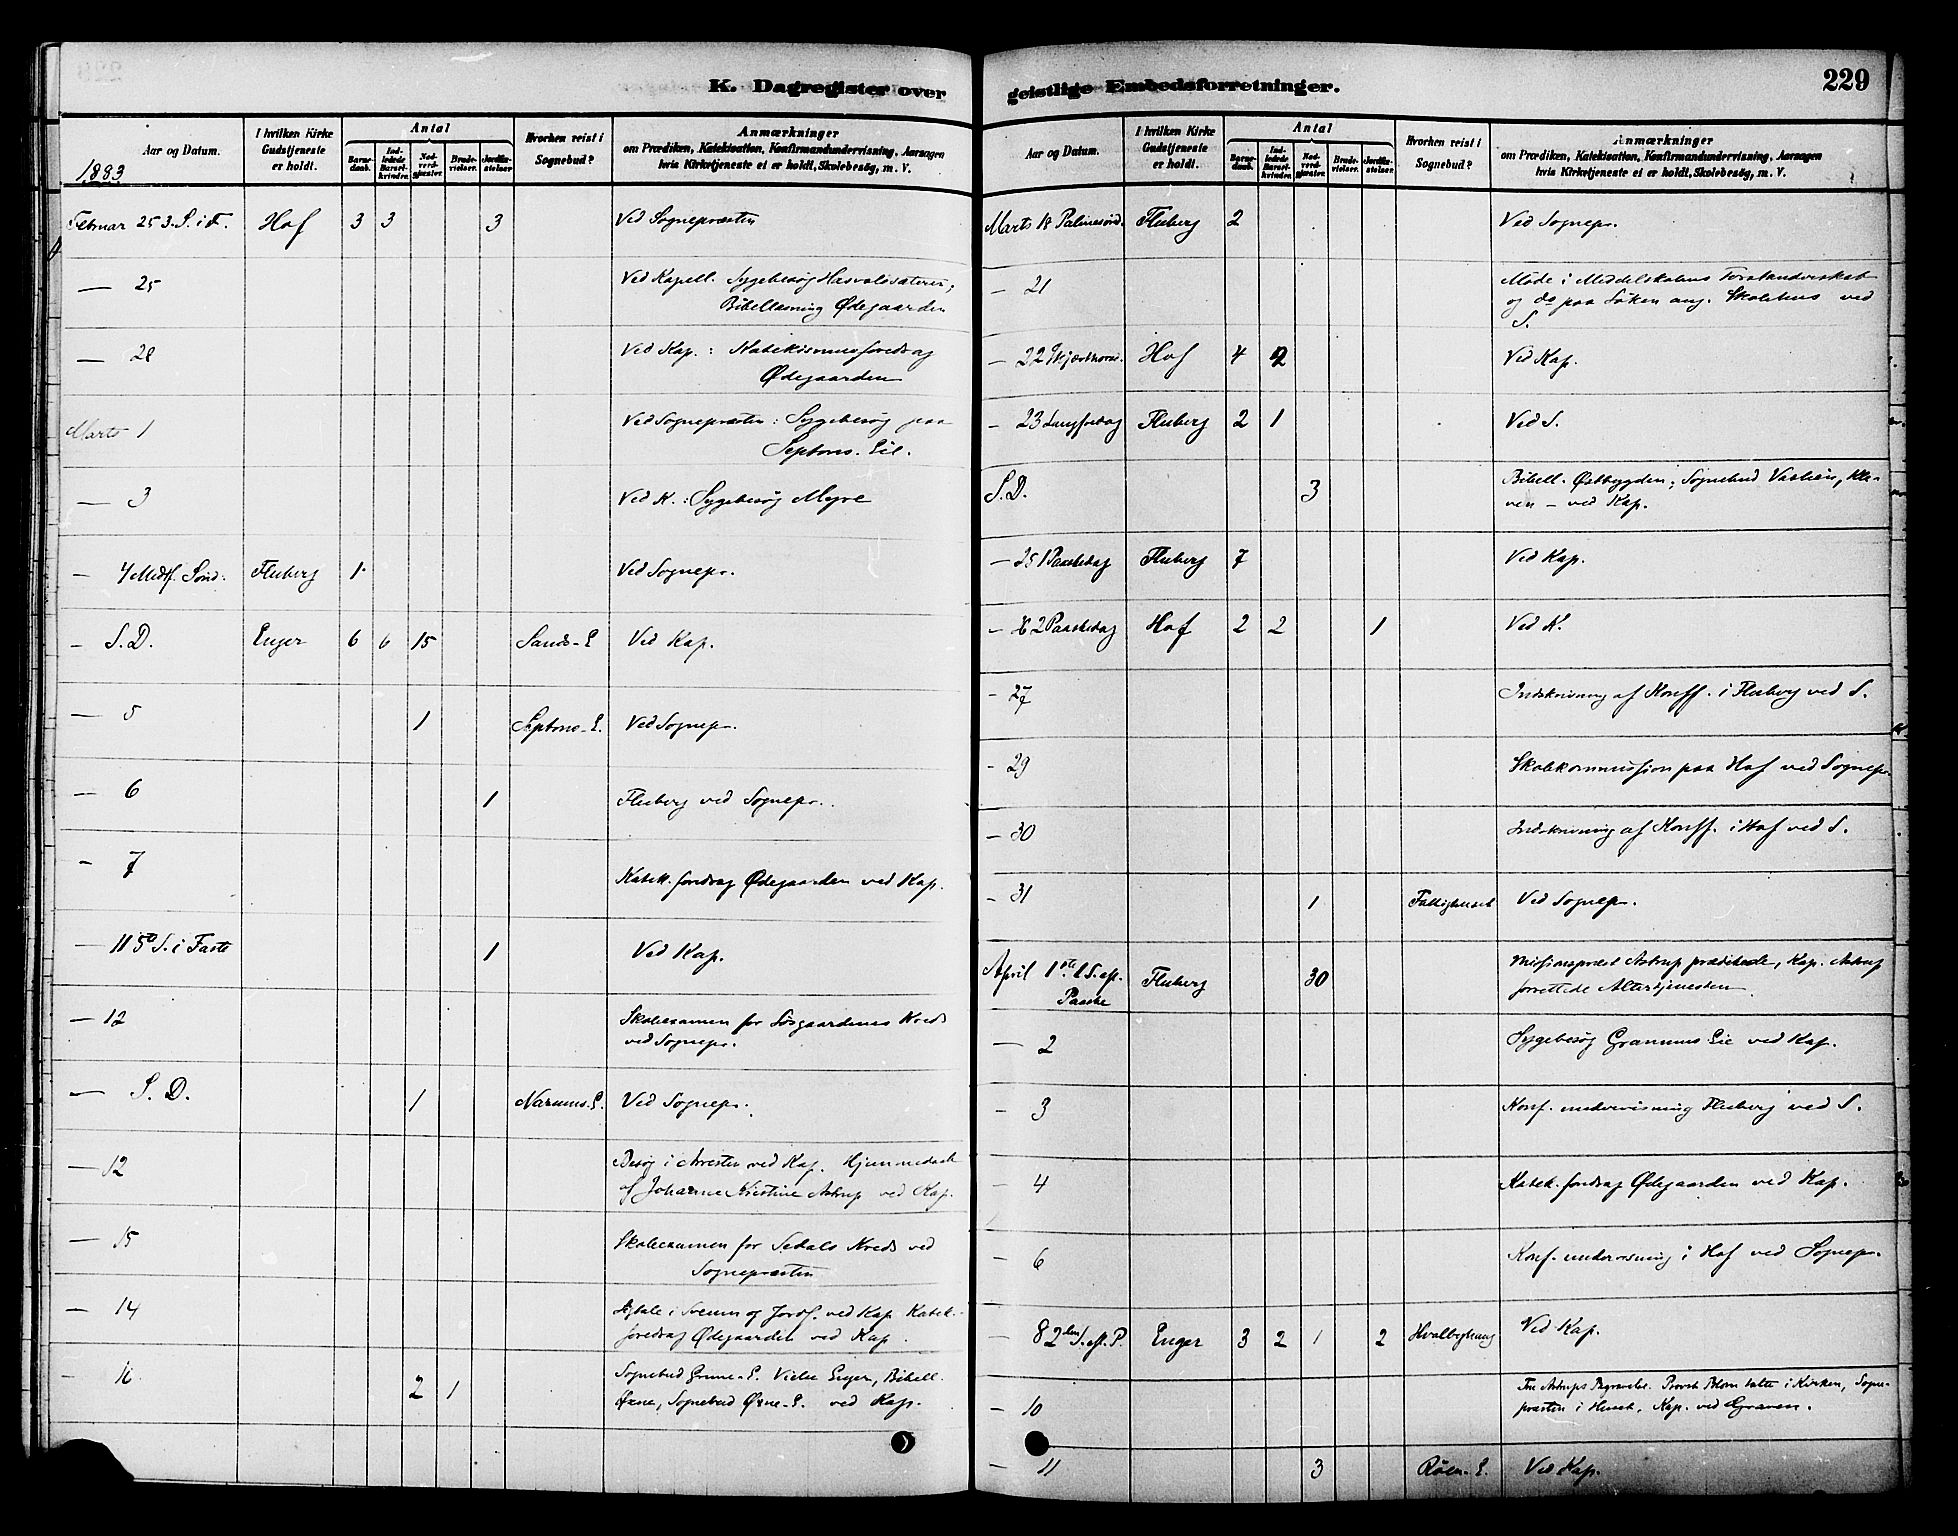 K. Dagregister over
Aar og Datum.
1883
I hvilken Kirke Gudstjeneste er holdt.
Antal
Barnedaab.
Indledede Barselkvinder.
Nadverdgjæster.
Brudevielser.
Jordfæstelser.
Hvorhen reist i Sognebud?
Anmærkninger
om Prædiken, Katekisation, Konfirmandundervisning, Aarsagen
hvis Kirketjeneste ei er holdt, Skolebesøg, m. V.
Februar 25 3. S. i F. Hof 3 3 3 Ved Sognepræsten
— 25 Ved Kapell. Sygebesøg
Bibellæsning Ødegaarden
— 28 Ved Kap.: Katekismusforedrag
Ødegaarden
Marts 1 Ved Sognepræsten: Sygebesøg paa
Septons. Eie.
— 3 Ved K.: Sygebesøg Myre
— 4 Midf. Sønd. Fluberg 1 Ved Sognepr.
— S. D. Enger 6 6 15 Sands-E Ved Kap.
— 5 1 Septons-E. Ved Sognepr.
— 6 1 Fluberg ved Sognepr.
— 7 Katek. foredrag Ødegaarden ved Kap.
— 11 5te S. i Faste 1 Ved Kap.
— 12 Skoleexamen for Kreds
ved Sognepr.
— S. D. 1 Narums-E. Ved Sognepr.
— 12 Besøg i Arresten ved Kap. Hjemmedaab
af Johanne Kristine Astrup ved Kap.
— 15 Skoleexamen for Sedals Kreds ved
Sognepræsten
— 14 i og Jordf. ved Kap. Katek.
foredrag Ødegaarden ved Kap.
— 16 2 1 Sognebud Grime-E. Vielse Enger, Bibell.
Øxne, Sognebud Øxne-E. ved Kap.
geistlige Embedsforretninger.
229
Aar og Datum.
I hvilken Kirke Gudstjeneste er holdt.
Antal
Barnedaab.
Indledede Barselkvinder.
Nadverdgjæster.
Brudevielser.
Jordfæstelser.
Hvorhen reist i Sognebud?
Anmærkninger
om Prædiken, Katekisation, Konfirmandundervisning, Aarsagen
hvis Kirketjeneste ei er holdt, Skolebesøg, m. V.
Marts 18 Palmesønd. Fluberg 2 Ved Sognepr.
— 21 Møde i Middelskolens Forstanderskab
og do paa Søken ang. Skolehus ved
S.
— 22 Skjærthorsd. Hof 4 2 Ved Kap.
— 23 Langfredag Fluberg 2 1 Ved S.
S. D. 3 Bibell. Østbygden; Sognebud Kle-
ven — ved Kap.
— 25 1 Paaskedag Fluberg 7 Ved Kap.
— 26 2 Paaskedag Hof 2 2 1 Ved K.
— 27 Indskrivning af Konff. i Fluberg ved S.
— 29 Skolekommission paa Hof ved Sognepr.
— 30 Indskrivning af Konff. i Hof ved S.
— 31 1 Fattighuset Ved Sognepr.
April 1ste 1 S. ef. Fluberg 30 Missionsprest Astrup prædikede, Kap. Astrup
Paaske forrettede Altertjenesten.
— 2 Sygebesøg Granums Eie ved Kap.
— 3 Konf. undervisning Fluberg ved S.
— 4 Katek. foredrag Ødegaarden ved Kap.
— 6 Konf. undervisning i Hof ved Sognepr.
— 8 2den S. ef. P. Enger 3 2 1 2 Hvalbyhaug Ved Kap.
— 10 Fru Astrups Begravelse. Provst Blom talte i Kirken, Sogne-
præsten i Huset, Kap. ved Graven.
— 11 3 Røen-E. Ved Kap.